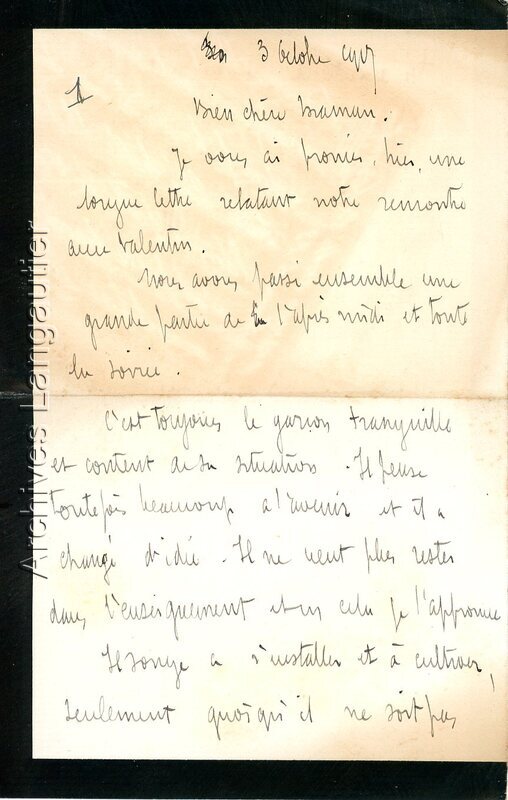 3 Octobre 1917
1
Bien chère Maman.
Je vous ai promis, hier, une
longue lettre relatant notre rencontre
avec Valentin.
Nous avons passé ensemble une
grande partie de l'après midi et toute
la soirée.
C'est toujours le garçon tranquille
et content de sa situation. Il pense
toutefois beaucoup a l'avenir et il a
changé d'idée. Il ne veut plus rester
dans l'enseignement et en cela je l'approuve
Il songe a s'installer et à cultiver,
seulement quoiqu'il ne soit pas
Archives Langautier